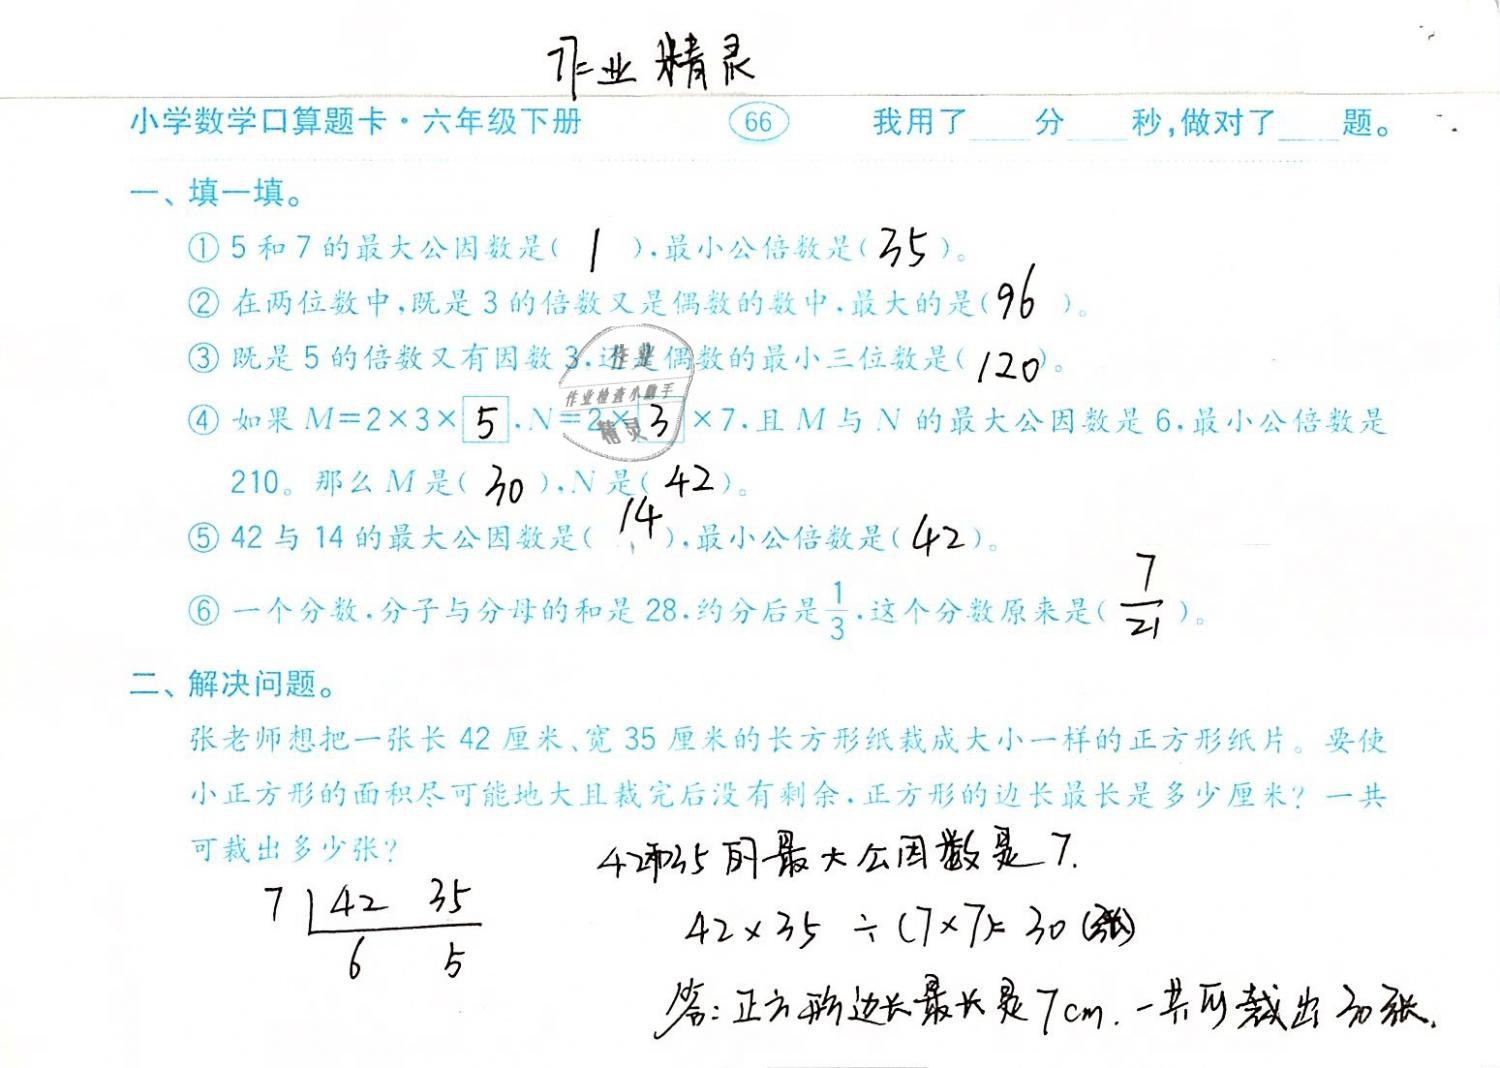 作业精灵
小学数学口算题卡·六年级下册 66 我用了____分____秒,做对了____题。
一、填一填。
① 5和7的最大公因数是( 1 ),最小公倍数是(35)。
② 在两位数中,既是3的倍数又是偶数的数中,最大的是(96)。
③ 既是5的倍数又有因数3,还是偶数的最小三位数是(120)。
④ 如果M=2×3×5,N=2×3×7,且M与N的最大公因数是6,最小公倍数是
210。那么M是(30),N是(42)。
⑤ 42与14的最大公因数是(14),最小公倍数是(42)。
⑥ 一个分数,分子与分母的和是28,约分后是1/3,这个分数原来是(7/21)。
二、解决问题。
张老师想把一张长42厘米、宽35厘米的长方形纸裁成大小一样的正方形纸片。要使
小正方形的面积尽可能地大且裁完后没有剩余,正方形的边长最长是多少厘米?一共
可裁出多少张?
42和35的最大公因数是7.
7 42 35
6 5
42×35÷(7×7)=30(张)
答:正方形边长最长是7cm.一共可裁出30张.
作业
作业检查小助手
精灵